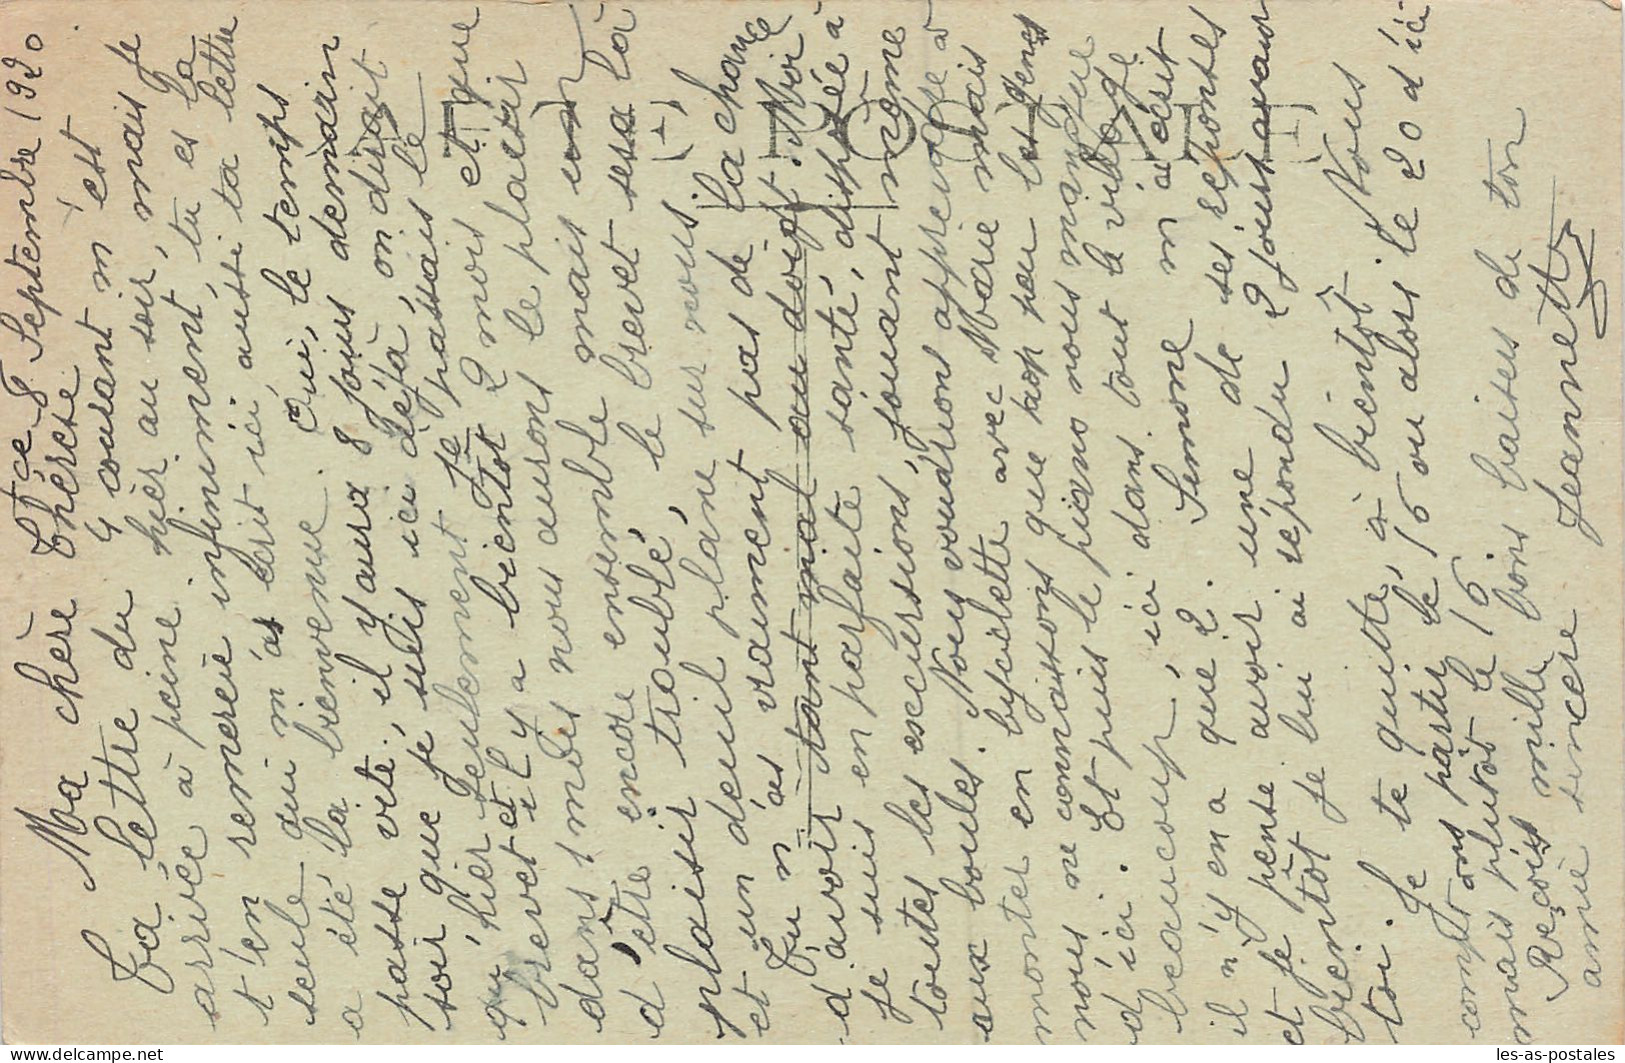 Ce 8 Septembre 1920.
Ma chère Thérèse
Ta lettre du 4 courant m'est
arrivée à peine hièr au soir, mais je
t'en remercie infinimént, tu es la
seule qui m'as écrit ici, aussi ta lettre
a été la bienvenue. Oui, le temps
passe vite, il y aura 8 jours demain
soir que je suis ici déjà, on dirait
qu'hier seulement je passais le
brevet et il y a bientôt 2 mois et que
dans 1 mois nous aurons le plaisir
d'être encore ensemble mais un
plaisir troublé, le brevet sera là
et un deuil plane sur nous.
Tu n'as vraiment pas de la chance
d'avoir tant mal au doigt. Moi
je suis en parfaite santé, disposée à
toutes les excursions, jouant même
aux boules. Nous voudrions apprendre à
monter en bysiclette avec Marie mais
nous ne connaissons que trop peu les gens
d'ici. Et puis le piano nous manque
beaucoup, ici dans tout le village
il n'y en a que 2. Simone m'a écrit
et je pense avoir une de ses réponses
bientôt je lui ai répondu 2 jours avant
toi.
Je te quitte, à bientôt. Nous
comptons partir le 16 ou alors le 20 d'ici
mais plutôt le 16
Reçois mille bons baisers de ton
amie sincère
Jeannette
les-as-postales